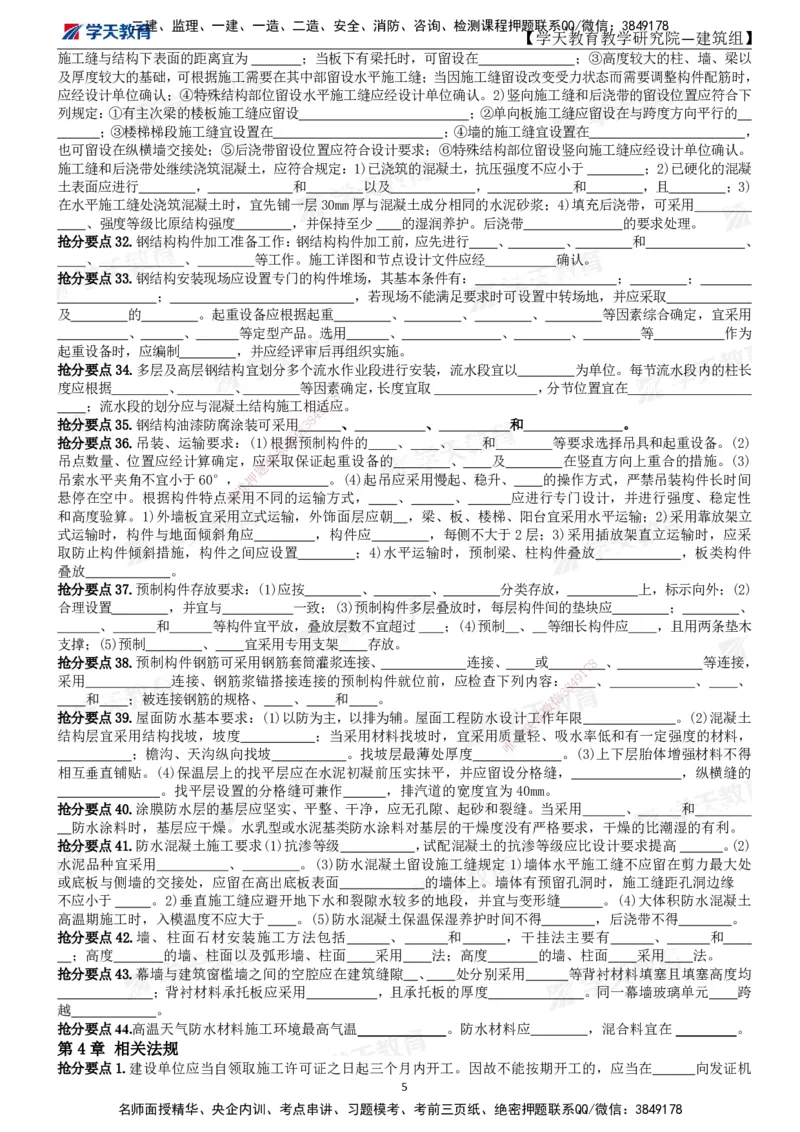 学天教育
二建、监理、一建、一造、二造、安全、消防、咨询、检测课程押题联系QQ/微信：3849178
【学天教育教学研究院—建筑组】
施工缝与结构下表面的距离宜为_______；当板下有梁托时，可留设在_____________；③高度较大的柱、墙、梁以
及厚度较大的基础，可根据施工需要在其中部留设水平施工缝；当因施工缝留设改变受力状态而需要调整构件配筋时，
应经设计单位确认；④特殊结构部位留设水平施工缝应经设计单位确认。2)竖向施工缝和后浇带的留设位置应符合下
列规定：①有主次梁的楼板施工缝应留设________________________；②单向板施工缝应留设在与跨度方向平行的__
______；③楼梯梯段施工缝宜设置在________________________；④墙的施工缝宜设置在______________________，
也可留设在纵横墙交接处；⑤后浇带留设位置应符合设计要求；⑥特殊结构部位留设竖向施工缝应经设计单位确认。
施工缝和后浇带处继续浇筑混凝土，应符合规定：1)已浇筑的混凝土，抗压强度不应小于________；2)已硬化的混凝
土表面应进行________，____________和________以及____________，____________和________，且________；3)
在水平施工缝处浇筑混凝土时，宜先铺一层 30mm 厚与混凝土成分相同的水泥砂浆；4)填充后浇带，可采用________
____、强度等级比原结构强度________，并保持至少____的湿润养护。后浇带______________的要求处理。
抢分要点 32.钢结构构件加工准备工作：钢结构构件加工前，应先进行____、________、________和______________、
____、____________、________等工作。施工详图和节点设计文件应经__________确认。
抢分要点 33.钢结构安装现场应设置专门的构件堆场，其基本条件有：____________________；________；_______
______________；__________________________，若现场不能满足要求时可设置中转场地，并应采取____________
及________的________。起重设备应根据起重________、________、________、________等因素综合确定，宜采用
__________、______、______等定型产品。选用______、____________、________、________等__________作为
起重设备时，应编制________，并应经评审后再组织实施。
抢分要点 34.多层及高层钢结构宜划分多个流水作业段进行安装，流水段宜以________为单位。每节流水段内的柱长
度应根据________、________、________等因素确定，长度宜取______________，分节位置宜在________________
____；流水段的划分应与混凝土结构施工相适应。
抢分要点 35.钢结构油漆防腐涂装可采用______、__________、__________和______________。
抢分要点 36.吊装、运输要求：(1)根据预制构件的____、____、____和________等要求选择吊具和起重设备。(2)
吊点数量、位置应经计算确定，应采取保证起重设备的________、____及________在竖直方向上重合的措施。(3)
吊索水平夹角不宜小于 60°，____________。(4)起吊应采用慢起、稳升、____的操作方式，严禁吊装构件长时间
悬停在空中。根据构件特点采用不同的运输方式，____、______、______应进行专门设计，并进行强度、稳定性
和高度验算。1)外墙板宜采用立式运输，外饰面层应朝__，梁、板、楼梯、阳台宜采用水平运输；2)采用靠放架立
式运输时，构件与地面倾斜角应________，构件应________，每侧不大于 2 层；3)采用插放架直立运输时，应采
取防止构件倾斜措施，构件之间应设置________；4)水平运输时，预制梁、柱构件叠放____________，板类构件
叠放____________。
抢分要点 37.预制构件存放要求：(1)应按________、________、________分类存放，__________上，标示向外；(2)
合理设置________，并宜与__________一致；(3)预制构件多层叠放时，每层构件间的垫块应________；________、
______、______和______等构件宜平放，叠放层数不宜超过____；(4)预制__、__等细长构件应____，且用两条垫木
支撑；(5)预制________、____宜采用专用支架____存放。
抢分要点 38.预制构件钢筋可采用钢筋套筒灌浆连接、____________连接、____或________、____________等连接，
采用____________连接、钢筋浆锚搭接连接的预制构件就位前，应检查下列内容：____、____________、____、
____和____；被连接钢筋的规格、____、____和____。
抢分要点 39.屋面防水基本要求：(1)以防为主，以排为辅。屋面工程防水设计工作年限____________。(2)混凝土
结构层宜采用结构找坡，坡度__________；当采用材料找坡时，宜采用质量轻、吸水率低和有一定强度的材料，
__________；檐沟、天沟纵向找坡__________。找坡层最薄处厚度____________。(3)上下层胎体增强材料不得
相互垂直铺贴。(4)保温层上的找平层应在水泥初凝前压实抹平，并应留设分格缝，______________，纵横缝的
______________。找平层设置的分格缝可兼作______，排汽道的宽度宜为 40mm。
抢分要点 40.涂膜防水层的基层应坚实、平整、干净，应无孔隙、起砂和裂缝。当采用______、______和________
__防水涂料时，基层应干燥。水乳型或水泥基类防水涂料对基层的干燥度没有严格要求，干燥的比潮湿的有利。
抢分要点 41.防水混凝土施工要求(1)抗渗等级__________,试配混凝土的抗渗等级应比设计要求提高______。(2)
水泥品种宜采用__________、________。(3)防水混凝土留设施工缝规定 1)墙体水平施工缝不应留在剪力最大处
或底板与侧墙的交接处，应留在高出底板表面____________的墙体上。墙体有预留孔洞时，施工缝距孔洞边缘
不应小于_____。2)垂直施工缝应避开地下水和裂隙水较多的地段，并宜与变形缝______。(4)大体积防水混凝土
高温期施工时，入模温度不应大于____。(5)防水混凝土保温保湿养护时间不得________，后浇带不得________。
抢分要点 42.墙、柱面石材安装施工方法包括______、______和______，干挂法主要有______、______和____
__；高度_______的墙、柱面以及弧形墙、柱面____采用____法；高度_______的墙、柱面____采用____法。
抢分要点 43.幕墙与建筑窗槛墙之间的空腔应在建筑缝隙__、____处分别采用______等背衬材料填塞且填塞高度均
______________；背衬材料承托板应采用__________，且承托板的厚度______________。同一幕墙玻璃单元____跨
越____________。
抢分要点 44.高温天气防水材料施工环境最高气温_____________。防水材料应________，混合料宜在_________。
第 4 章 相关法规
抢分要点 1.建设单位应当自领取施工许可证之日起三个月内开工。因故不能按期开工的，应当在______向发证机
5
名师面授精华、央企内训、考点串讲、习题模考、考前三页纸、绝密押题联系QQ/微信：3849178